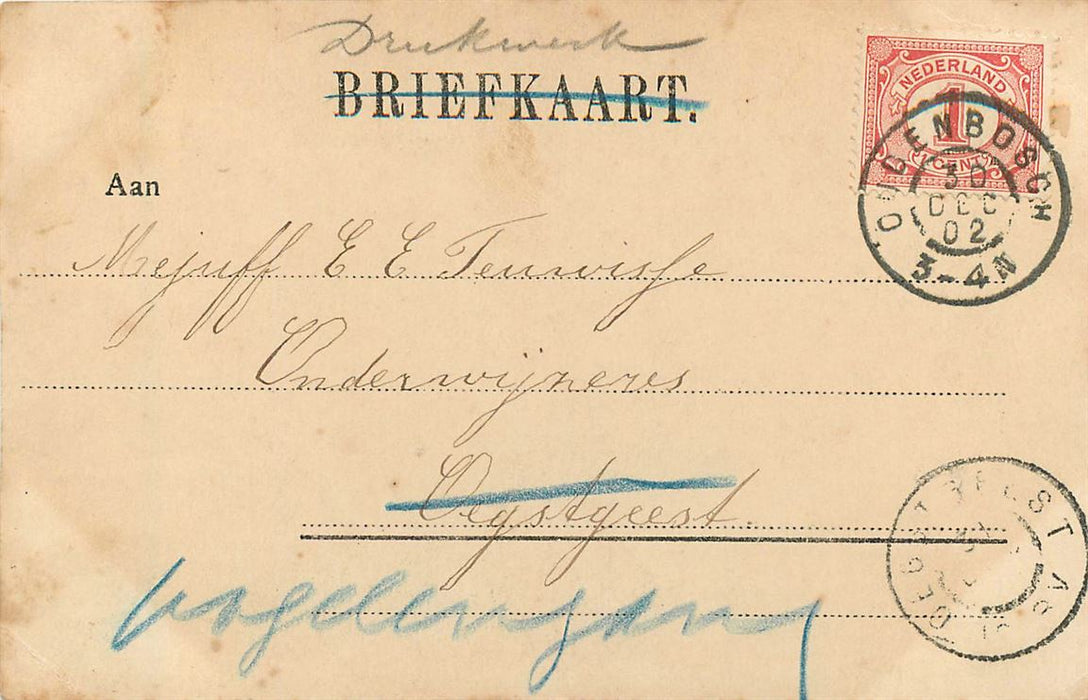 Drukwerk
BRIEFKAART.
NEDERLAND
1
CENT
OUDENBOSCH
30
DEC
02
3-4N
Aan
Mejuff E E Teuwisse
Onderwijzeres
Oegstgeest.
Vogelenzang